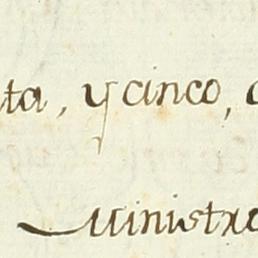 ta, y cinco,
Ministro